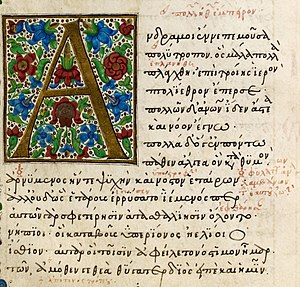 Ἄνδρα μοι ἔννεπε μοῦσα
πολύτροπον. ὃς μάλα πολλὰ
πλάγχθη. ἐπεὶ τροίης ἱερὸν
πτολίεθρον ἔπερσε
πολλῶν δ' ἀνθρώπων ἴδεν ἄστεα
καὶ νόον ἔγνω
πολλὰ δ' ὅγ' ἐν πόντω
πάθεν ἄλγεα ὃν κατὰ θυμὸν
ἀρνύμενος ἥν τε ψυχὴν καὶ νόστον ἑταίρων
ἀλλ' οὐδ' ὣς ἑτάρους ἐρρύσατο ἱέμενός περ
αὐτῶν γὰρ σφετέρησιν ἀτασθαλίησιν ὄλοντο
νήπιοι οἳ κατὰ βοῦς ὑπερίονος ἠελίοιο
ἤσθιον. αὐτὰρ ὁ τοῖσιν ἀφείλετο νόστιμον ἦμαρ
τῶν ἁμόθεν γε θεὰ θύγατερ διὸς εἰπὲ καὶ ἡμῖν